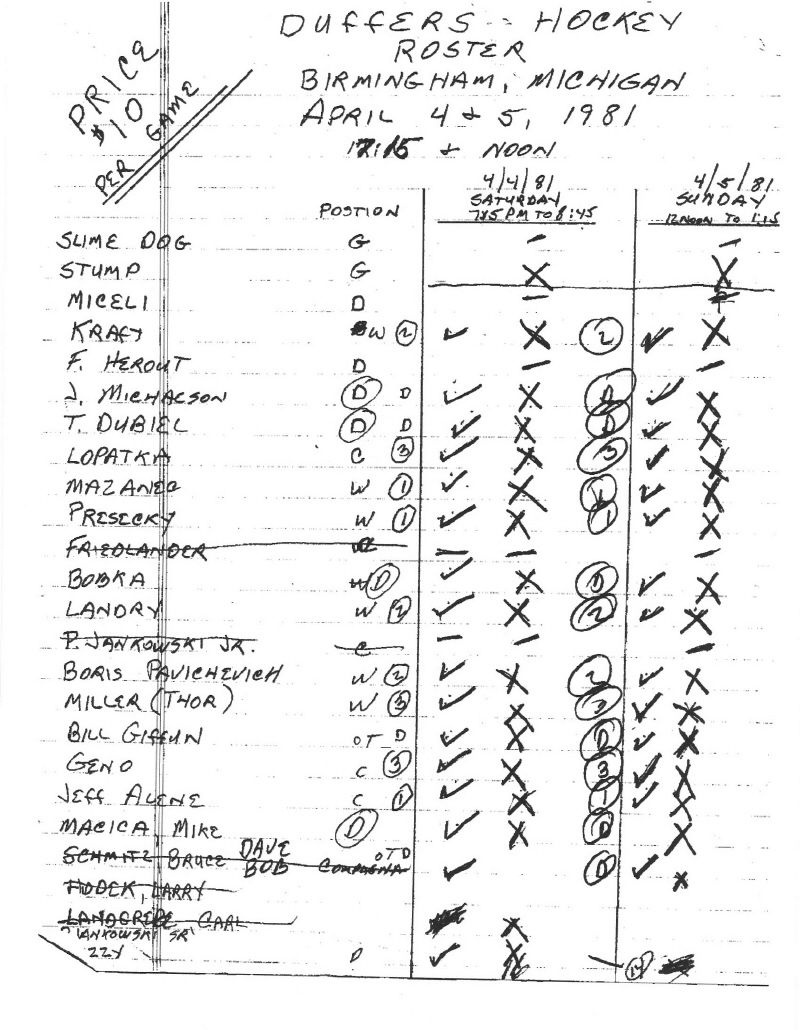 DUFFERS - HOCKEY
ROSTER
BIRMINGHAM, MICHIGAN
APRIL 4 & 5, 1981
& NOON
PRICE
$10
PER GAME
4/4/81 4/5/81
SATURDAY SUNDAY
POSTION PM TO 8:45 12 NOON TO 1:15
SLIME DOG G – –
STUMP G X X
MICELI D –
KRAFT W 2 ✓ X 2 ✓ X
F. HEROUT D – –
J. MICHALSON D D ✓ X D ✓ X
T. DUBIEL D D ✓ X D ✓ X
LOPATKA C 3 ✓ X 3 ✓ X
MAZANEC W 1 ✓ X 1 ✓ X
PRESECKY W 1 ✓ X 1 ✓ X
FRIEDLANDER – – –
BOBKA W D ✓ X D ✓ X
LANDRY W 2 ✓ X 2 ✓ X
P. JANKOWSKI JR. C – – –
BORIS PAVICHEVICH W 2 ✓ X 2 ✓ X
MILLER (THOR) W 3 ✓ X 3 ✓ X
BILL GIFFUN OT D ✓ X D ✓ X
GENO C 3 ✓ X 3 ✓ X
JEFF ALENE C 1 ✓ X 1 ✓ X
MACICA, MIKE D ✓ X D X
SCHMITZ BRUCE DAVE BOB COMPAGNA OT D ✓ D ✓ X
HODEK, LARRY
CARL X
JANKOWSKI SR
ZZY D ✓ X 14